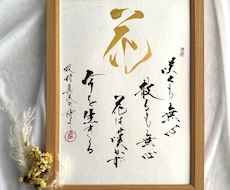 花
咲くも無心
散るも無心
花は嘆かず
今を生きる
坂村真民